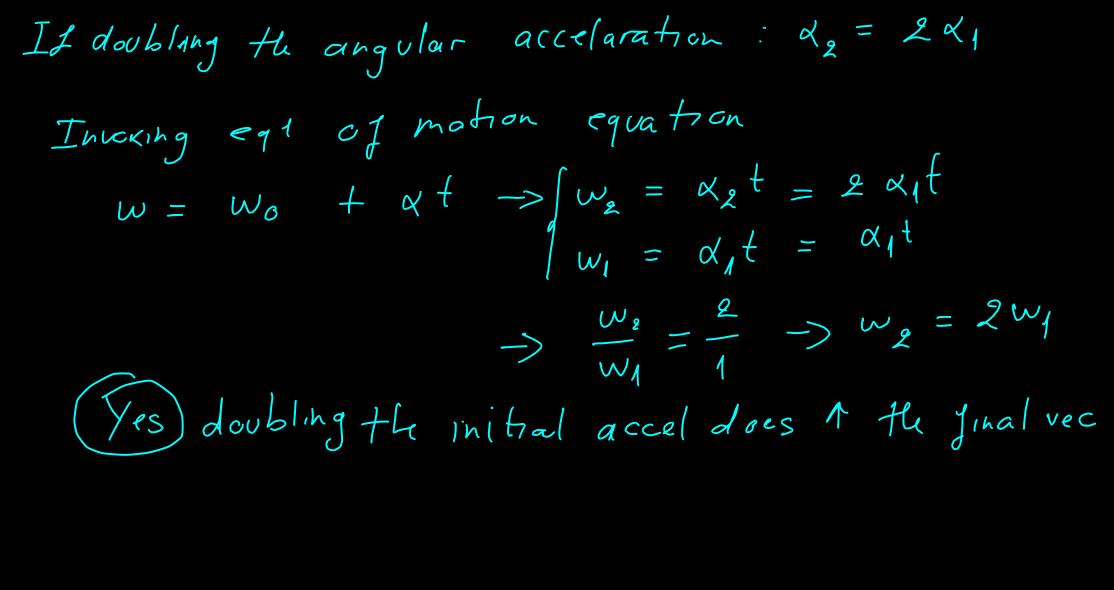 If doubling the angular accelaration : α₂ = 2α₁
Invoking eq1 of motion equation
w = w₀ + αt → w₂ = α₂t = 2α₁t
w₁ = α₁t = α₁t
→ w₂/w₁ = 2/1 → w₂ = 2w₁
Yes doubling the initial accel does ↑ the final vec